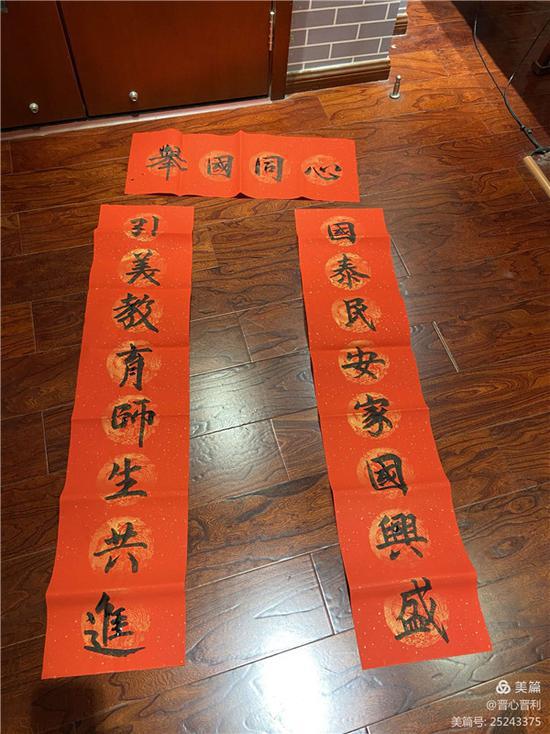 舉國同心
國泰民安家國興盛
引美教育師生共進
美篇
@晋心晋利
美篇号: 25243375